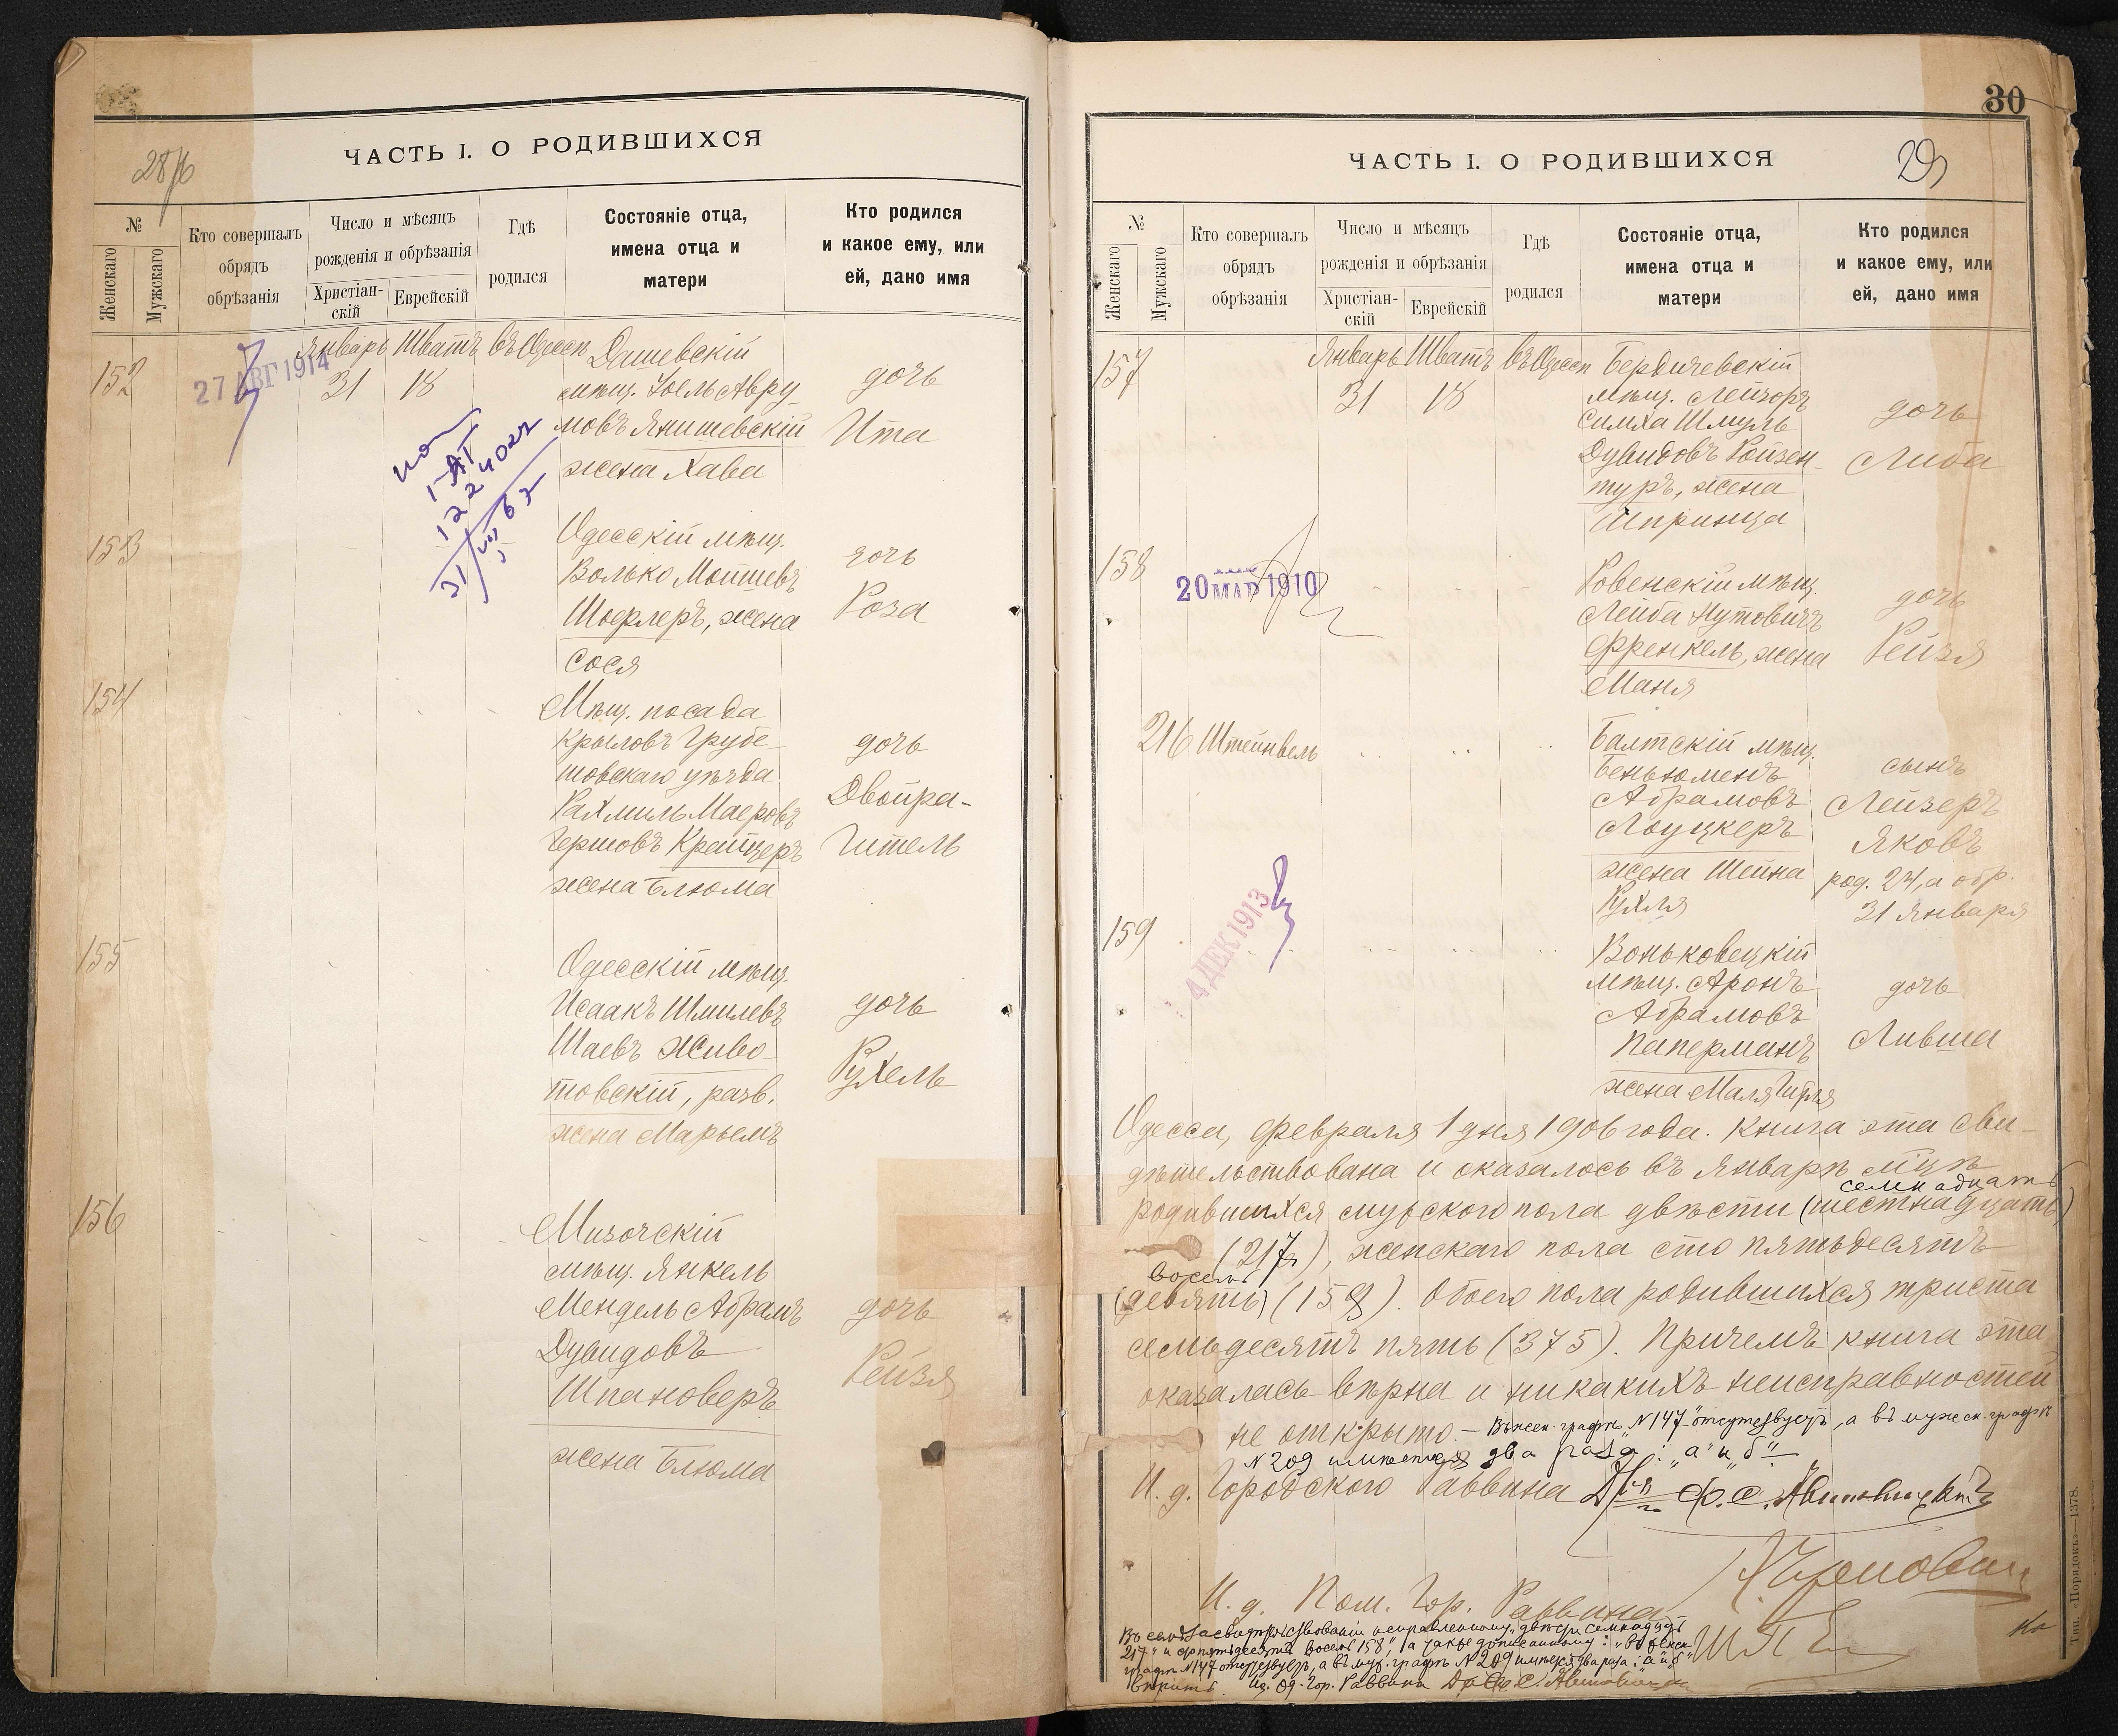 ЧАСТЬ I. О РОДИВШИХСЯ
28/б
№
Женскаго
Мужскаго
Кто совершалъ
обрядъ
обрѣзанія
Число и мѣсяцъ
рожденія и обрѣзанія
Христіан-
скій
Еврейскій
Гдѣ
родился
Состояніе отца,
имена отца и
матери
Кто родился
и какое ему, или
ей, дано имя
Январь Шватъ въ Одессѣ Дашевскій
152 27 АВГ 1914 31 18 мѣщ. Іоель Авру- дочь
мовъ Янишевскій Ита
жена Хава
153 Одесскій мѣщ.
Волько Мошшевъ дочь
Шоерлеръ, жена Роза
Сося
154 Мѣщ. посада
Крыловъ Грубе- дочь
шовскаго уѣзда
Рахмиль Маеровъ Двойра-
Гершовъ Крейцеръ Гитель
жена Блюма
155 Одесскій мѣщ.
Исаакъ Шмилевъ дочь
Шаевъ Живо- Рухель
товскій, разв.
жена Марьемъ
156 Мизочскій
мѣщ. Янкель
Мендель Абрамъ дочь
Дувидовъ Рейзя
Шпановеръ
жена Блюма
30
ЧАСТЬ I. О РОДИВШИХСЯ
29
№
Женскаго
Мужскаго
Кто совершалъ
обрядъ
обрѣзанія
Число и мѣсяцъ
рожденія и обрѣзанія
Христіан-
скій
Еврейскій
Гдѣ
родился
Состояніе отца,
имена отца и
матери
Кто родился
и какое ему, или
ей, дано имя
Январь Шватъ въ Одессѣ Бердичевскій
157 31 18 мѣщ. Лейзоръ дочь
Симха Шмуль
Дувидовъ Ройзен- Либа
туръ, жена
Шпринца
158 20 МАР 1910 Ровенскій мѣщ. дочь
Лейба Нутовичъ
Френкель, жена Рейзя
Маня
216 Штейнвель Балтскій мѣщ.
Беньюменъ сынъ
Абрамовъ Лейзеръ
Лоуцкеръ Яковъ
жена Шейна род. 24, а обр.
Рухля 31 Января
159 4 ДЕК 1913 Воньковецкій
мѣщ. Аронъ дочь
Абрамовъ
Паперманъ Лившa
жена Маля Гитля
Одесса, февраля 1 дня 1906 года. Книга эта сви-
дѣтельствована и оказалось въ Январѣ м-цѣ
семнадцать
родившихся мужского пола двѣсти (шестнадцать)
(217), женскаго пола сто пятьдесятъ
восемь
(девять) (158). Обоего пола родившихся триста
семьдесятъ пять (375). Причемъ книга эта
оказалась вѣрна и никакихъ неисправностей
не открыто. — Въ женск. графѣ „N147" отсутствуетъ, а въ мужск. графѣ
N 209 имѣется два раза: „а" и „б"
И. д. Городского Раввина Д-ръ С.
И. д. Пом. Гор. Раввина
Въ семъ засвидѣтельствованіи исправленному „двѣсти семнадцать
217" и сто пятьдесятъ восемь 158", а также дописанному: „въ женск.
графѣ N147 отсутствуетъ, а въ муж. графѣ N 209 имѣется два раза: „а" и „б"
вѣрить. Од. Гор. Раввинъ
Тип. «Порядокъ»—1378.